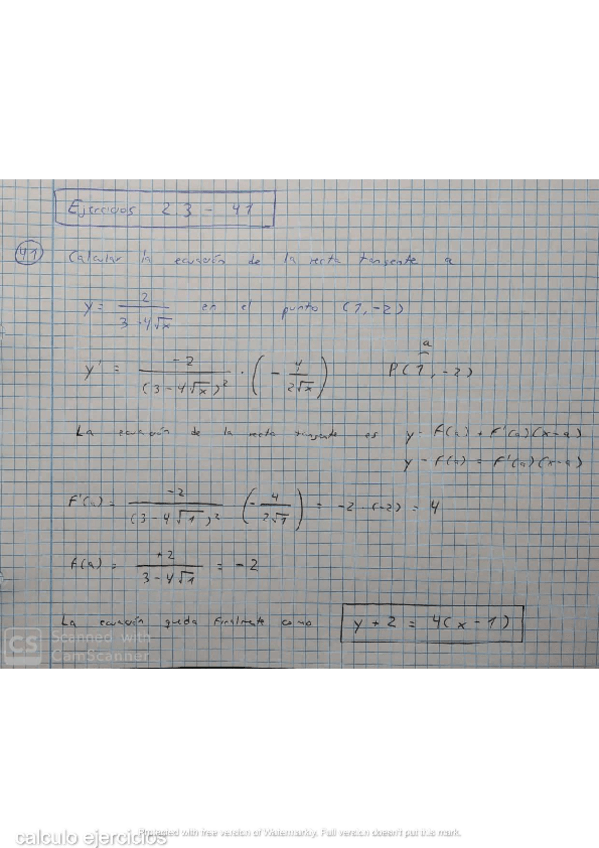 Ejercicios 2.3 - 41
41 Calcular la ecuación de la recta tangente a
y = 2 / (3 - 4√x) en el punto (1, -2)
y' = -2 / (3 - 4√x)² · (- 4 / 2√x) P(1, -2)
a
La ecuación de la recta tangente es y = f(a) + f'(a)(x-a)
y - f(a) = f'(a)(x-a)
f'(a) = -2 / (3 - 4√1)² (- 4 / 2√1) = -2 · (-2) = 4
f(a) = +2 / (3 - 4√1) = -2
La ecuación queda finalmente como y + 2 = 4(x - 1)
CS Scanned with
CamScanner
Protected with free version of Watermarkly. Full version doesn't put this mark.
calculo ejercicios